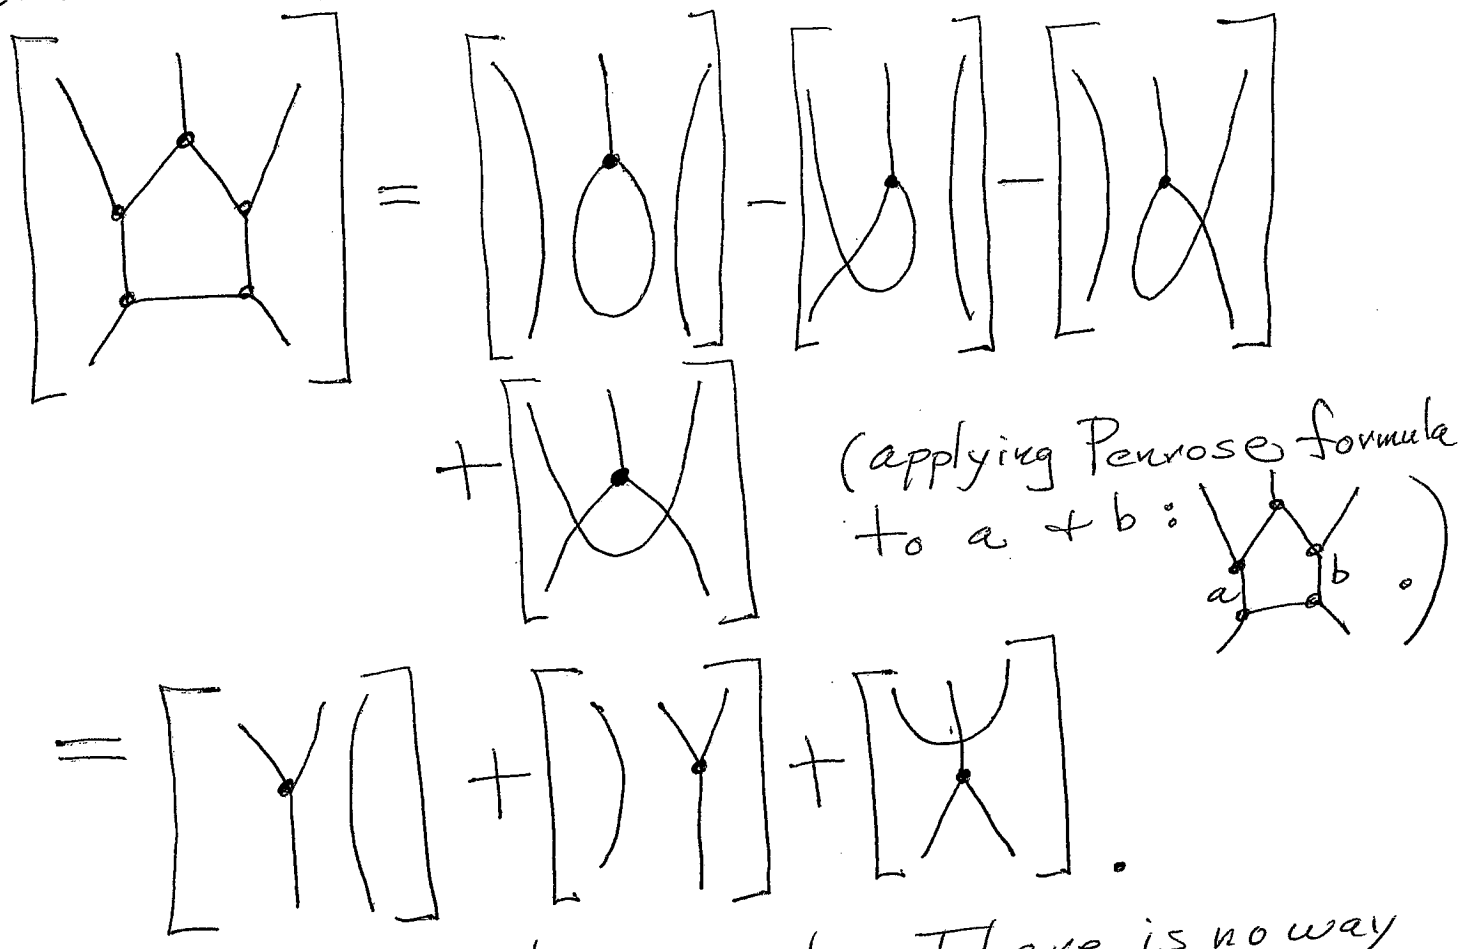 = - -
+ (applying Penrose formula
to a + b :
a b . )
= + + .
There is no way